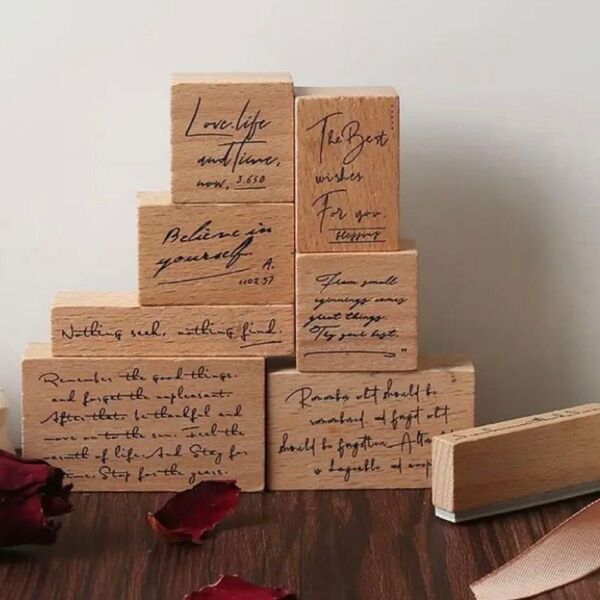 Love.life
and Time,
now, 3.630
The Best
wishes
For you.
blessing
Believe in
yourself.
A.
1102.57
From small
eginnings comes
great things.
Try your best.
Nothing seek, nothing find.
Remember the good things.
and forget the unpleasant.
After that, be thankful and
move on to the sun. Feel the
warmth of life. And Stay for
time, Stop for the years.
Remember what should be
remembered and forget what
should be forgotten. Alter
is changeable and